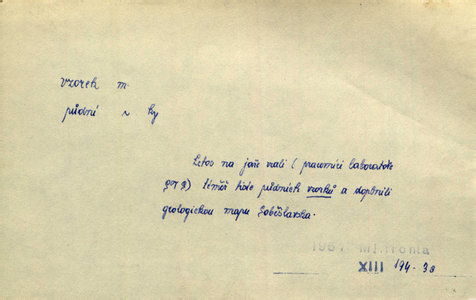 vzorek m.
půdní ~ ky
Letos na jaře vzali (pracovníci laboratoře
) téměř tisíc půdních vzorků a doplnili
geologickou mapu Soběslavska.
195. Ml. fronta
XIII 194 - 30